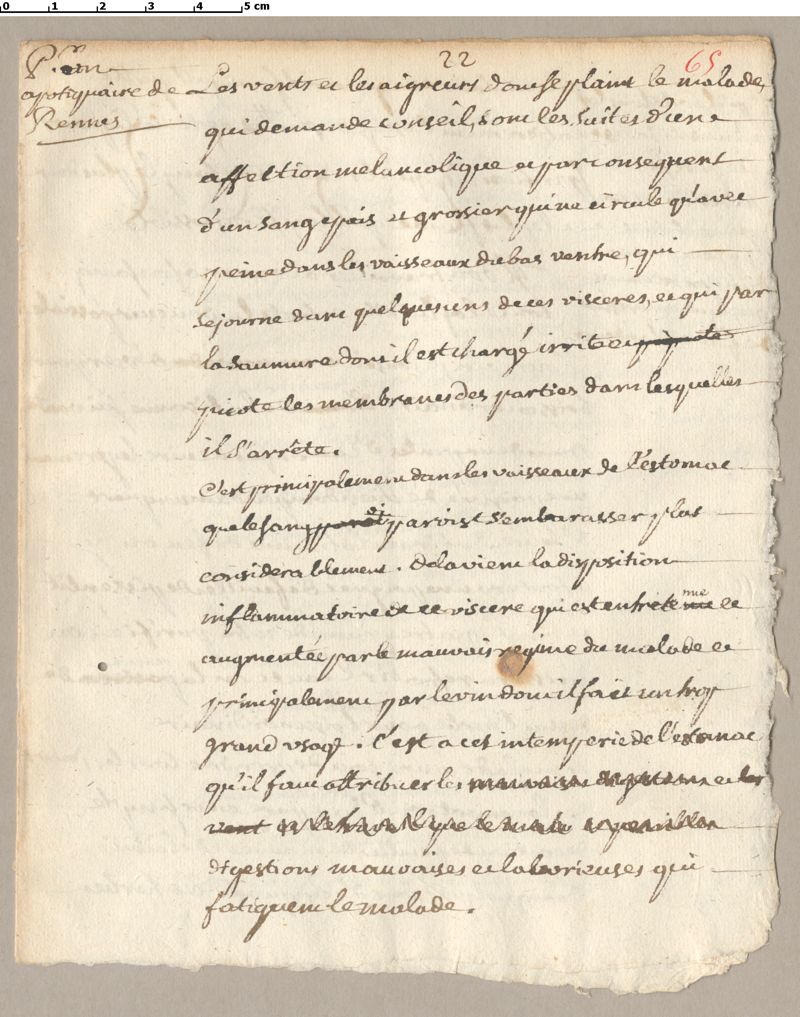 0 1 2 3 4 5 cm
22
65
apotiquaire de
Rennes
Les vents et les aigreurs dont se plaint le malade,
qui demande conseil, sont les suites d'une
affection melancolique et par consequent
d'un sang epais et grossier qui ne circule qu'avec
peine dans les vaisseaux du bas ventre, qui
sejourne dans quelques uns de ces visceres, et qui par
la saumure dont il est chargé irrite et picote
picote les membranes des parties dans lesquelles
il s'arrête.
C'est principalement dans les vaisseaux de l'estomac
que le sang paroist s'embarasser plus
considerablement. de la vient la disposition
inflammatoire de ce viscere qui est entretenue et
augmentée par le mauvais regime du malade et
principalement par le vin dont il fait un trop
grand usage. C'est a cet intemperie de l'estomac
qu'il faut attribuer les mauvaises digestions et les
vent
digestions mauvaises et laborieuses qui
fatiguent le malade.